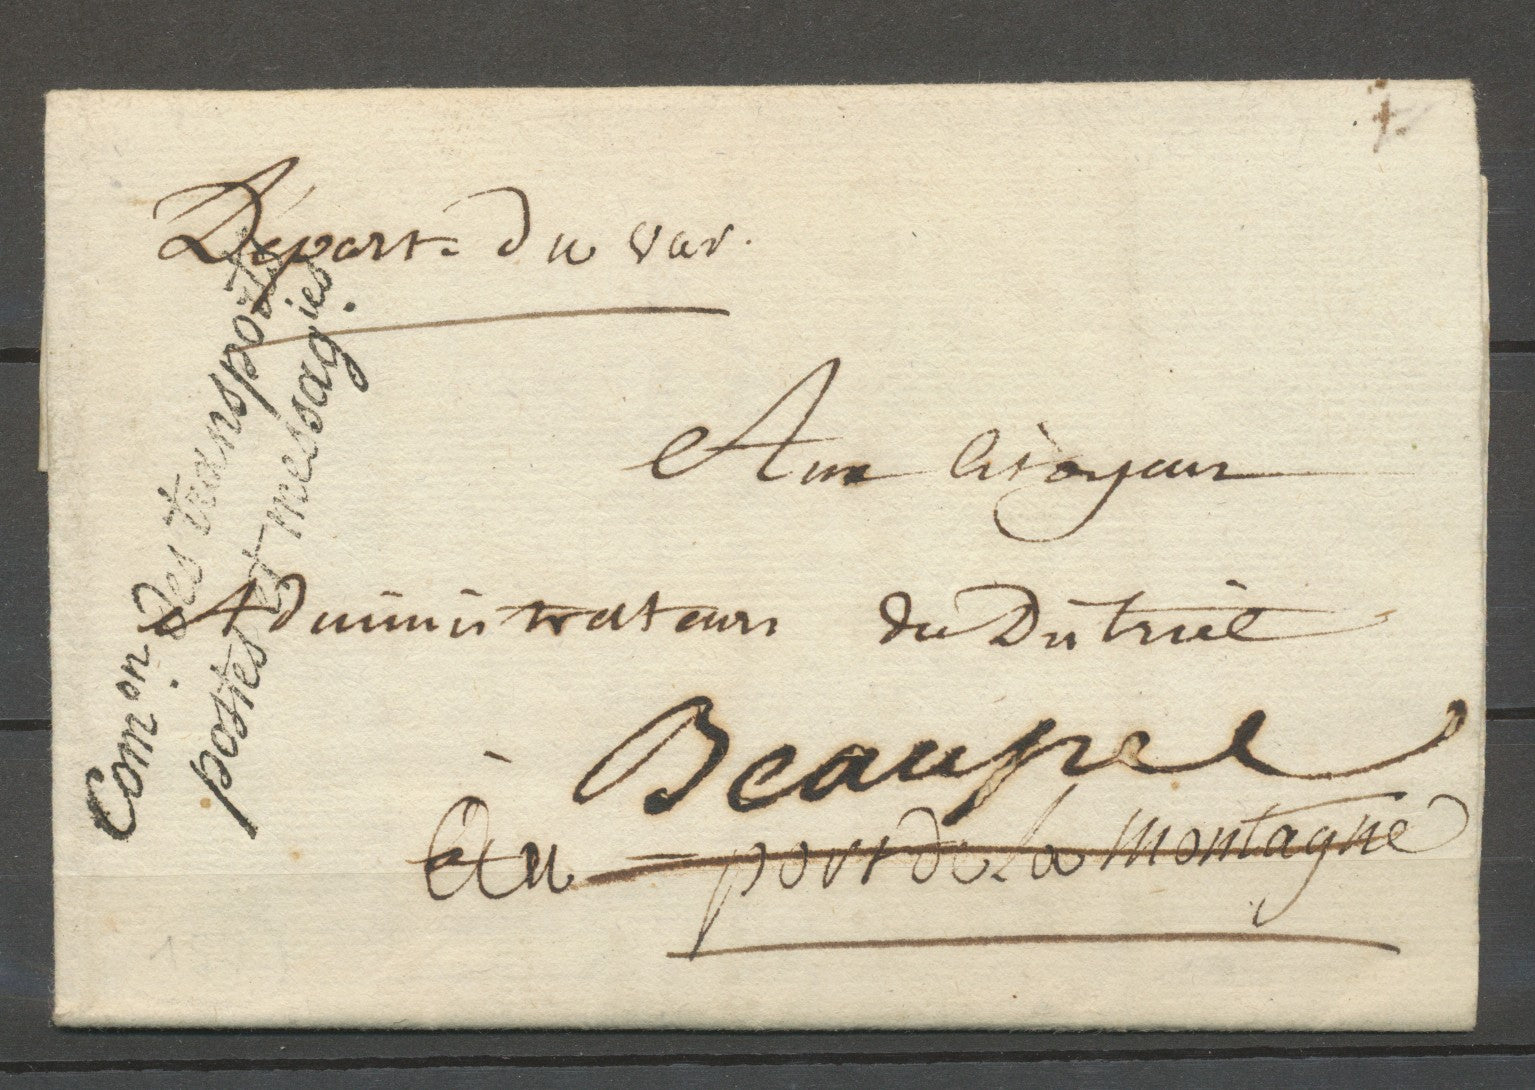 Départ. du var.
Aux Citoyens
Administrateurs du District
à Beaupré
Au port de la Montagne
Com.on des transports
postes et messageries.